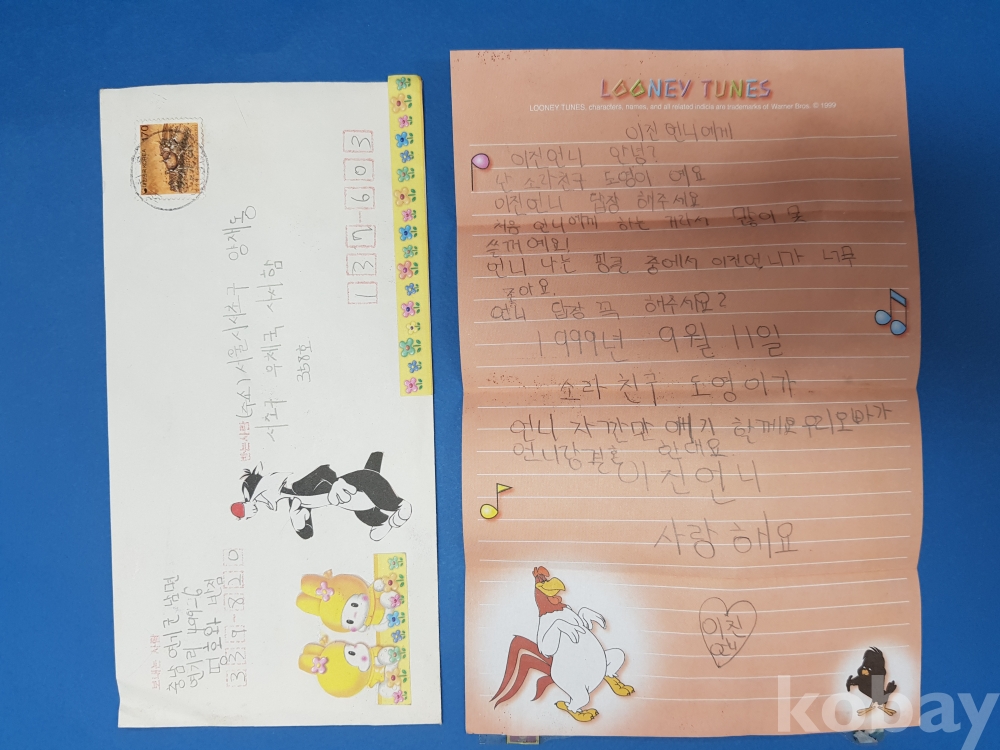 170
137-603
받는사람 (주소) 서울 서초구 양재동
서초구 우체국 사서함
358호
보내는 사람
충남 연기군 남면
연기리 499-6
반점
337-820
LOONEY TUNES
LOONEY TUNES, characters, names, and all related indicia are trademarks of Warner Bros. © 1999
이진언니에게
이진언니 안녕?
난 소라친구 도영이 예요
이진언니 답장 해주세요
처음 언니에게 하는 거라서 많이 못
쓸꺼예요!
언니 나는 핑클 중에서 이진언니가 너무
조아요.
언니 답장 꼭 해주세요?
1999년 9월 11일
소라친구 도영이가
언니 자깐만 얘기 할께요 우리오빠가
언니랑 결혼 한대요.
이진언니
사랑해요
이진
언니
kobay